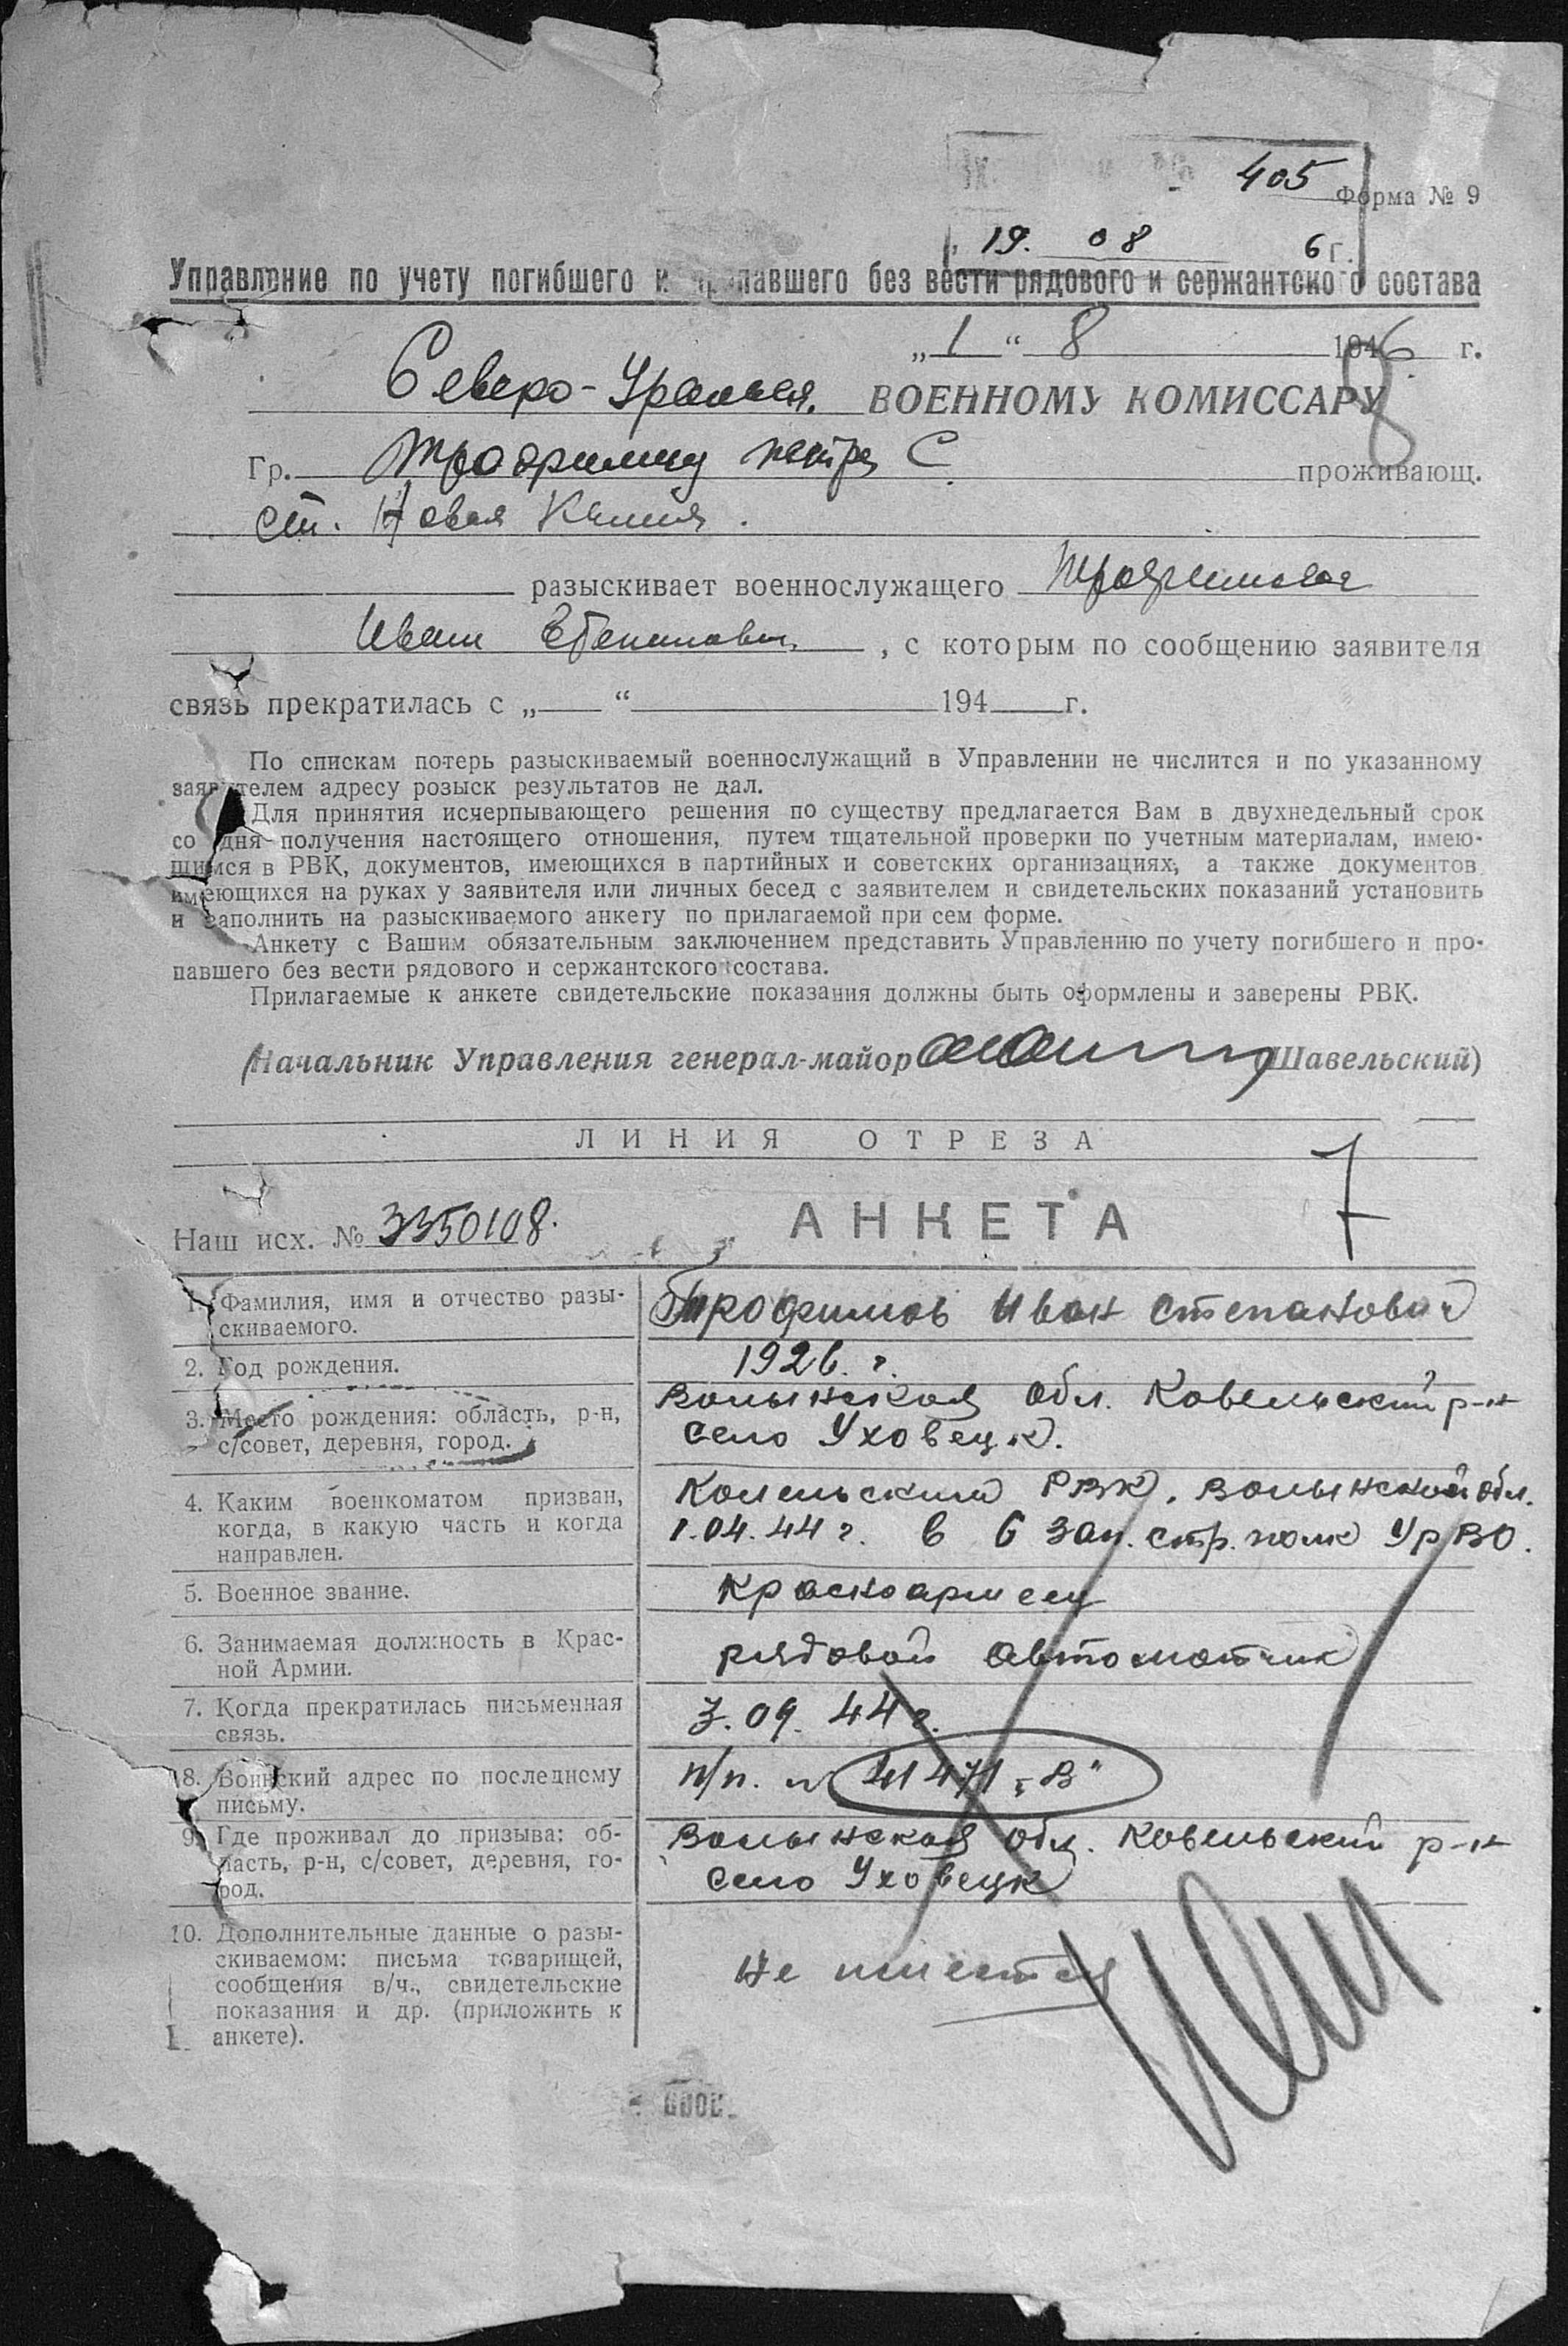 405
Форма № 9
19. 08 6 г.
Управление по учету погибшего и пропавшего без вести рядового и сержантского состава
„1“ 8 1946 г.
8
Северо-Уральск. ВОЕННОМУ КОМИССАРУ
Гр. С. проживающ.
ст. Новая
разыскивает военнослужащего Трофимова
Иван , с которым по сообщению заявителя
связь прекратилась с „ “ 194 г.
По спискам потерь разыскиваемый военнослужащий в Управлении не числится и по указанному
заявителем адресу розыск результатов не дал.
Для принятия исчерпывающего решения по существу предлагается Вам в двухнедельный срок
со дня получения настоящего отношения, путем тщательной проверки по учетным материалам, имею-
щимся в РВК, документов, имеющихся в партийных и советских организациях, а также документов
имеющихся на руках у заявителя или личных бесед с заявителем и свидетельских показаний установить
и заполнить на разыскиваемого анкету по прилагаемой при сем форме.
Анкету с Вашим обязательным заключением представить Управлению по учету погибшего и про-
павшего без вести рядового и сержантского состава.
Прилагаемые к анкете свидетельские показания должны быть оформлены и заверены РВК.
(Начальник Управления генерал-майор Шавельский)
ЛИНИЯ ОТРЕЗА
7
Наш исх. № 3350108.
АНКЕТА
1. Фамилия, имя и отчество разы-
скиваемого.
Трофимов Иван Степанович
2. Год рождения.
1926. г.
3. Место рождения: область, р-н,
с/совет, деревня, город.
Волынская обл. Ковельский р-н
село Уховецк.
4. Каким военкоматом призван,
когда, в какую часть и когда
направлен.
РВК. Волынской обл.
1.04.44 г. в 6 зап. стр. полк УрВО.
5. Военное звание.
красноармеец
6. Занимаемая должность в Крас-
ной Армии.
рядовой автоматчик
7. Когда прекратилась письменная
связь.
3.09.44 г.
8. Воинский адрес по последнему
письму.
п/п. 41471 „В“
9. Где проживал до призыва: об-
ласть, р-н, с/совет, деревня, го-
род.
Волынская обл. Ковельский р-н
село Уховецк
10. Дополнительные данные о разы-
скиваемом: письма товарищей,
сообщения в/ч., свидетельские
показания и др. (приложить к
анкете).
не имеется